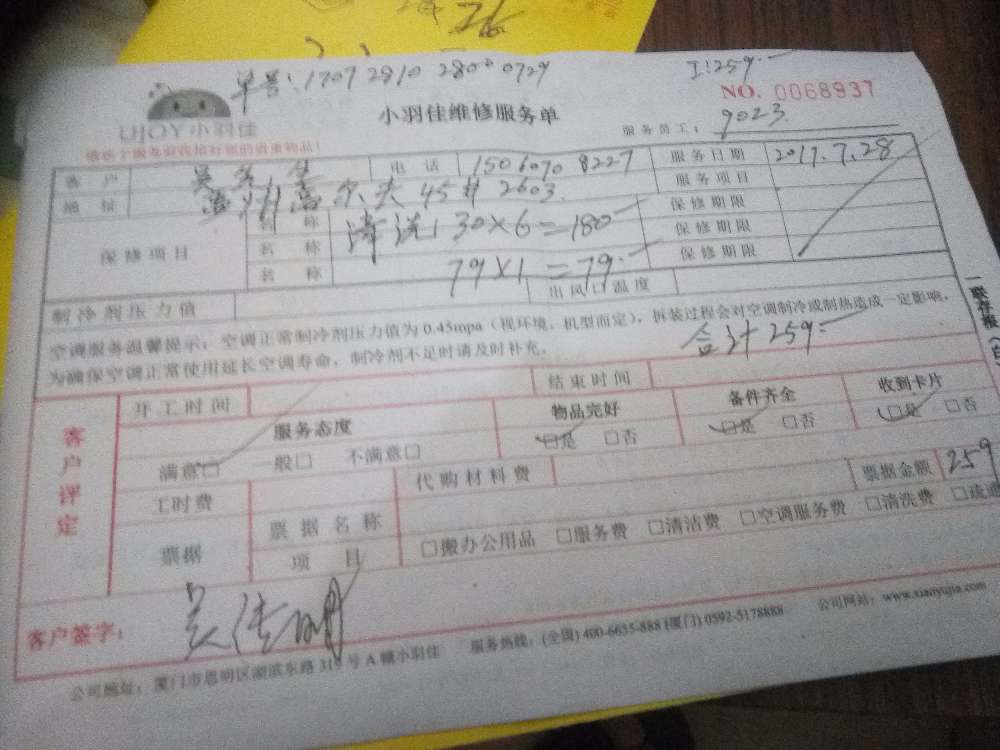 单号:1707 2810 2800 0729
I:259.-
NO. 0068937
UJOY小羽佳
小羽佳维修服务单
服务员工: 9023
客户 吴先生 电话 1506070 8227 服务日期 2017.7.28
地址 高尔夫45# 2603. 服务项目
保修项目 名称 清洗 30×6=180- 保修期限
名称 79×1=79.- 保修期限
名称 保修期限
制冷剂压力值 出风口温度
空调服务温馨提示:空调正常制冷剂压力值为0.45mpa(视环境、机型而定),拆装过程会对空调制冷或制热造成一定影响,
为确保空调正常使用延长空调寿命,制冷剂不足时请及时补充。
合计259-
客户评定 开工时间 结束时间
服务态度 物品完好 备件齐全 收到卡片
满意□ 一般□ 不满意□ □是 □否 □是 □否 □是 □否
工时费 代购材料费 票据金额 259
票据 票据名称
项目 □搬办公用品 □服务费 □清洁费 □空调服务费 □清洗费 □疏通
客户签字:
公司地址:厦门市思明区湖滨东路319号A幢小羽佳 服务热线:(全国)400-6655-888(厦门)0592-5178888 公司网站:www.xiaoyujia.com